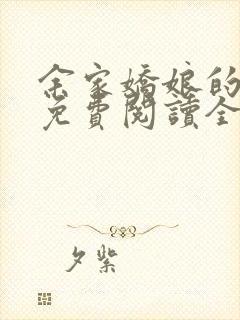 余家嬌娘的
免費閱讀全
夕紫